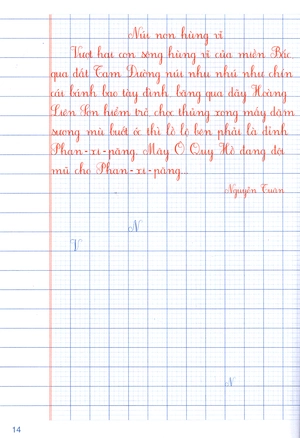 Núi non hùng vĩ
Vượt hai con sông hùng vĩ của miền Bắc
qua đất Tam Đường núi nhu nhú như chín
cái bánh bao tày đình, băng qua dãy Hoàng
Liên Sơn hiểm trở chọc thủng xong mây dăm
sương mù buốt óc thì lồ lộ bên phải là đỉnh
Phan-xi-păng. Mây Ô Quy Hồ đang đội
mũ cho Phan-xi-păng...
Nguyễn Tuân
N
V
N
14